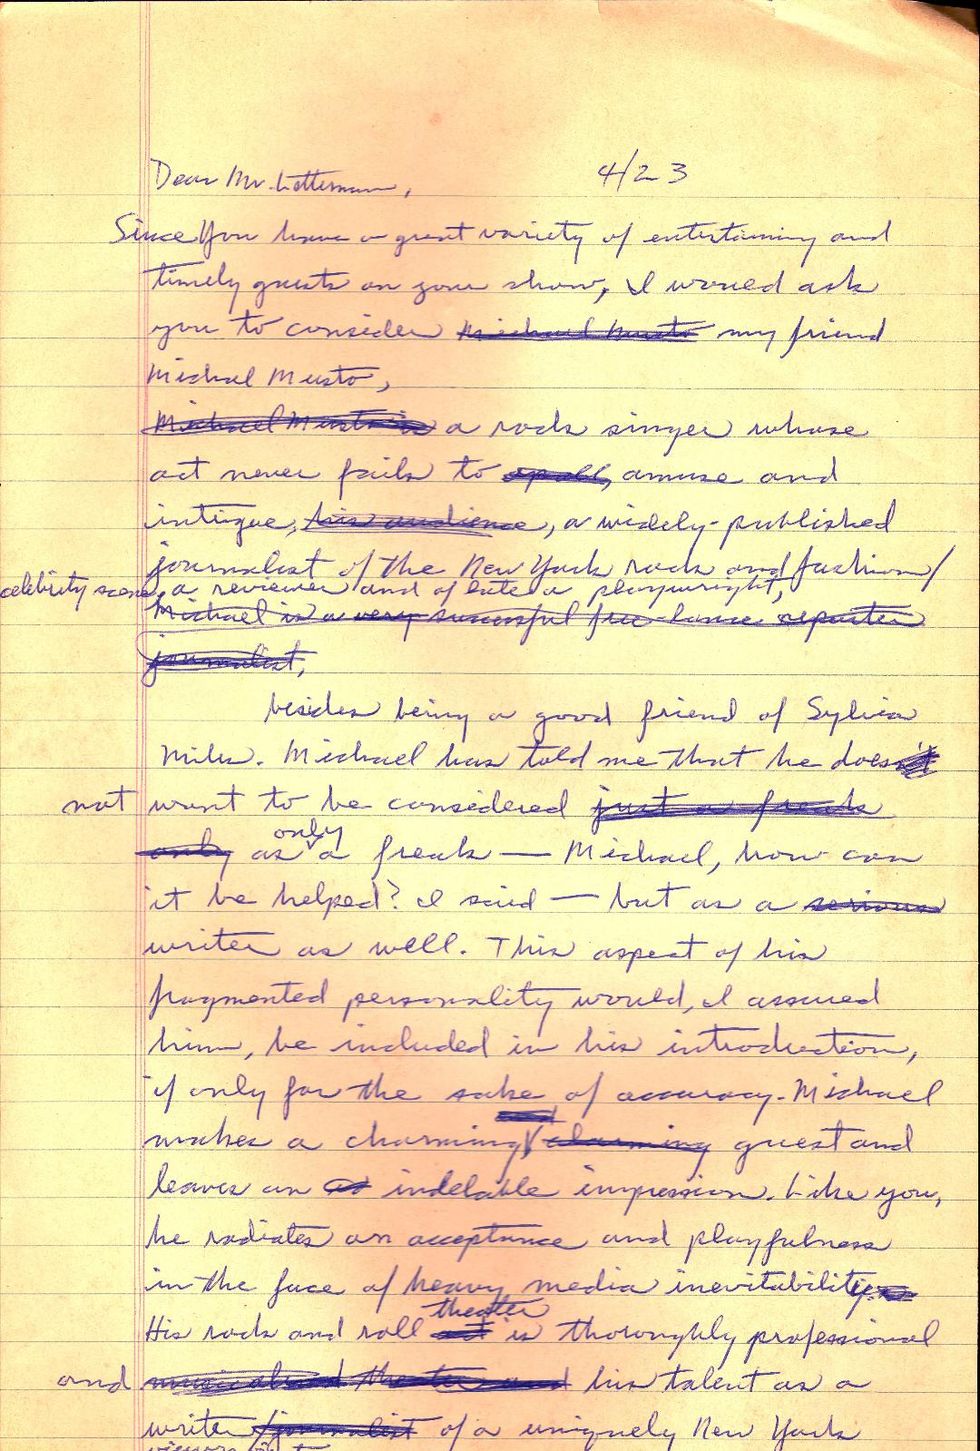 Dear Mr. Letterman, 4/23
Since You have a great variety of entertaining and
timely guests on your show, I would ask
you to consider Michael Musto my friend
Michael Musto,
Michael Musto is a rock singer whose
act never fails to amuse and
intrigue, his audience, a widely-published
journalist of the New York rock and fashion/
celebrity scene, a reviewer and of late a playwright,
Michael is a very successful free-lance reporter
journalist,
besides being a good friend of Sylvia
Miles. Michael has told me that he does
not want to be considered just a freak
only as only a freak — Michael, how can
it be helped? I said — but as a serious
writer as well. This aspect of his
fragmented personality would, I assured
him, be included in his introduction,
if only for the sake of accuracy. Michael
makes a charming charming guest and
leaves an indelable impression. Like you,
he radiates an acceptance and playfulness
in the face of heavy media inevitability.
theater
His rock and roll act is thoroughly professional
and musical and theater and his talent as a
writer/journalist of a uniquely New York